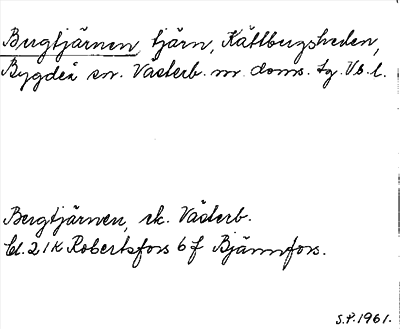 Bergtjärnen, tjärn, Kålbergsheden,
Bygdeå sn. Västerb. nr. doms. tg. Vb. l.
Bergtjärnen, ek. Västerb.
bl. 21K Robertsfors 6 f Bjännfors.
S.P. 1961.